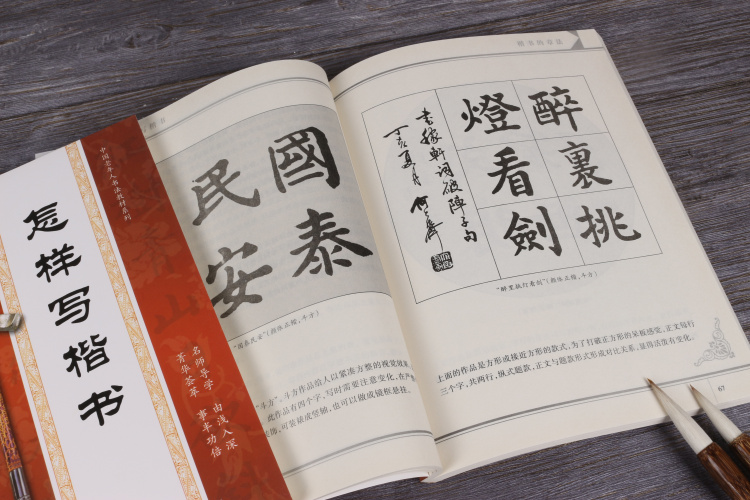 中国老年人书法教材系列
怎样写楷书
名师导学 由浅入深
菁华荟萃 事半功倍
國泰
民安
"国泰民安"(颜体正楷,斗方)
"斗方"。斗方作品给人以紧凑方整的视觉效
此作品有四个字,写时需要注意变化,在严
装饰,可装裱成竖轴,也可以做成镜框悬挂。
楷书的章法
醉裏挑
燈看劍
书稼轩词破阵子句
丁亥夏月
"醉里挑灯看剑"(颜体正楷,斗方)
上面的作品是方形或接近方形的款式,为了打破正方形的呆板感觉,正文每行
三个字,共两行,纵式题款,正文与题款形式形成对比关系,显得活泼有变化。
67